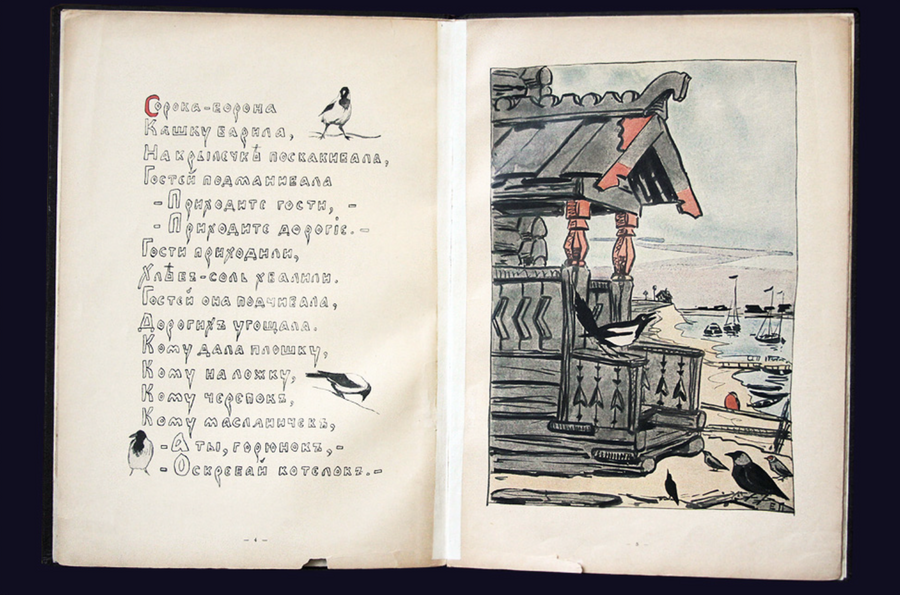 Сорока-ворона
Кашку варила,
На крылечкѣ поскакивала,
Гостей подманивала
- Приходите гости, -
- Приходите дорогіе. -
Гости приходили,
Хлѣбъ-соль хвалили.
Гостей она подчивала,
Дорогихъ угощала.
Кому дала плошку,
Кому на ложку,
Кому черепокъ,
Кому масланичекъ,
- А ты, горюнокъ, -
- Оскребай котелокъ. -
- 4 -